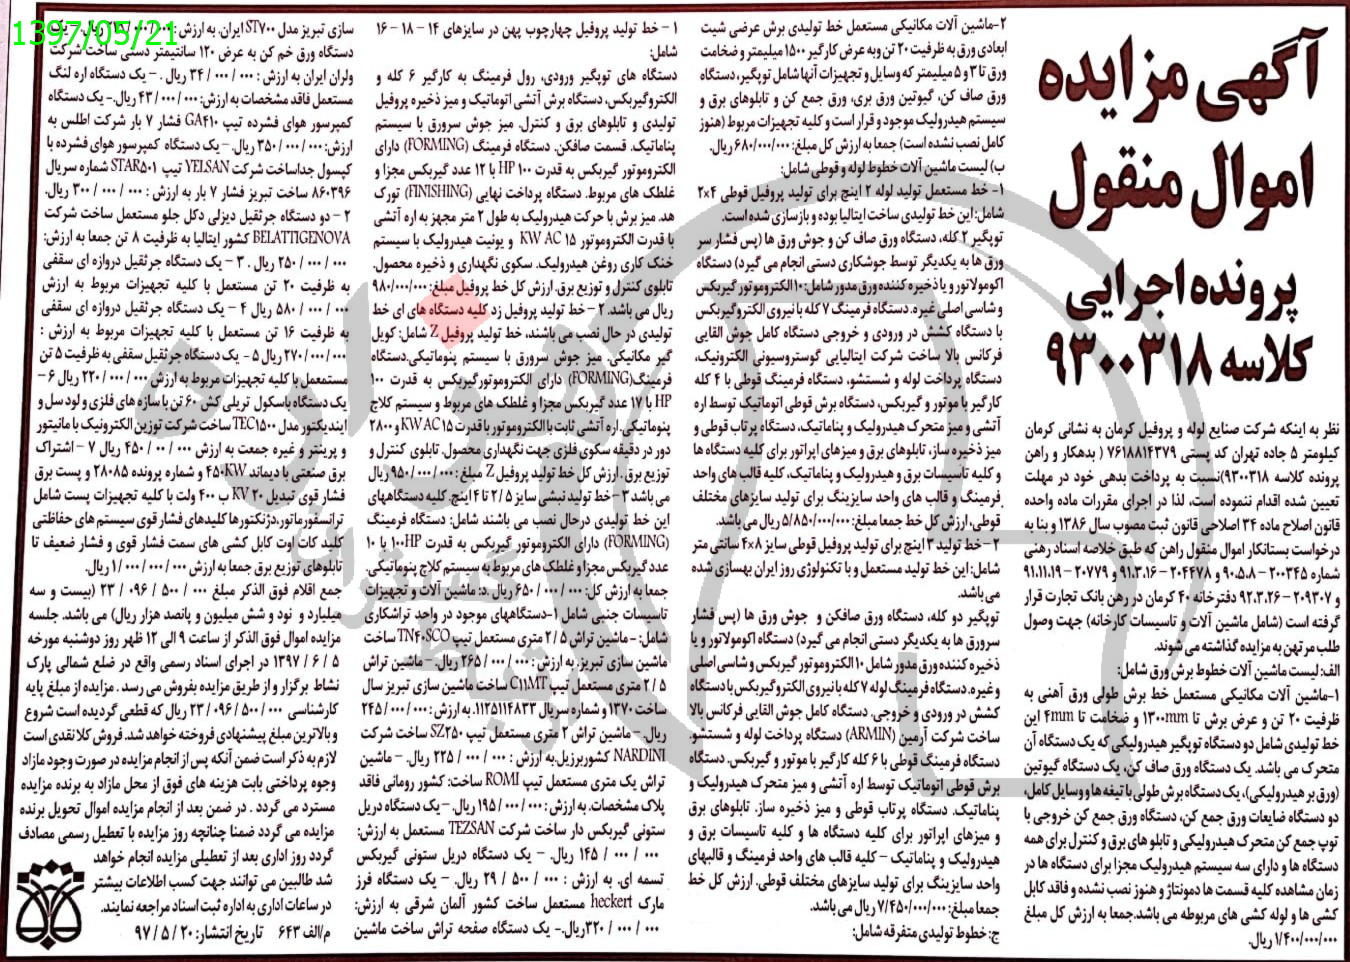 1397/05/21
آگهی مزایده
اموال منقول
پرونده اجرایی
کلاسه ۹۳۰۰۳۱۸
نظر به اینکه شرکت صنایع لوله و پروفیل کرمان به نشانی کرمان
کیلومتر ۵ جاده تهران کد پستی ۷۶۱۸۸۱۴۳۷۹ ( بدهکار و راهن
پرونده کلاسه ۹۳۰۰۳۱۸)نسبت به پرداخت بدهی خود در مهلت
تعیین شده اقدام ننموده است، لذا در اجرای مقررات ماده واحده
قانون اصلاح ماده ۳۴ اصلاحی قانون ثبت مصوب سال ۱۳۸۶ و بنا به
درخواست بستانکار اموال منقول راهن که طبق خلاصه اسناد رهنی
شماره ۲۰۰۳۴۵ – ۹۰.۵.۸ و ۲۰۴۴۷۸ – ۹۱.۳.۱۶ و ۲۰۷۷۹ – ۹۱.۱۱.۱۹
و ۲۰۹۳۰۷ – ۹۲.۳.۲۶ دفترخانه ۴۰ کرمان در رهن بانک تجارت قرار
گرفته است (شامل ماشین آلات و تاسیسات کارخانه) جهت وصول
طلب مرتهن به مزایده گذاشته می شوند.
الف: لیست ماشین آلات خطوط برش ورق شامل:
۱-ماشین آلات مکانیکی مستعمل خط برش طولی ورق آهنی به
ظرفیت ۲۰ تن و عرض برش تا ۱۳۰۰mm و ضخامت تا ۴mm این
خط تولیدی شامل دو دستگاه توپگیر هیدرولیکی که یک دستگاه آن
متحرک می باشد. یک دستگاه ورق صاف کن، یک دستگاه گیوتین
(ورق بر هیدرولیکی)، یک دستگاه برش طولی با تیغه ها و وسایل کامل،
دو دستگاه ضایعات ورق جمع کن، دستگاه ورق جمع کن خروجی با
توپ جمع کن متحرک هیدرولیکی و تابلو های برق و کنترل برای همه
دستگاه ها و دارای سه سیستم هیدرولیک مجزا برای دستگاه ها در
زمان مشاهده کلیه قسمت ها دمونتاژ و هنوز نصب نشده و فاقد کابل
کشی ها و لوله کشی های مربوطه می باشد.جمعا به ارزش کل مبلغ
۱/۴۰۰/۰۰۰/۰۰۰ ریال.
۲-ماشین آلات مکانیکی مستعمل خط تولیدی برش عرضی شیت
ابعادی ورق به ظرفیت ۲۰ تن وبه عرض کارگیر ۱۵۰۰ میلیمتر و ضخامت
ورق تا ۳ و ۵ میلیمتر که وسایل و تجهیزات آنها شامل توپگیر، دستگاه
ورق صاف کن، گیوتین ورق بری، ورق جمع کن و تابلوهای برق و
سیستم هیدرولیک موجود و قرار است و کلیه تجهیزات مربوط (هنوز
کامل نصب نشده است) جمعا به ارزش کل مبلغ: ۶۸۰/۰۰۰/۰۰۰ ریال.
ب) لیست ماشین آلات خطوط لوله و قوطی شامل:
۱- خط مستعمل تولید لوله ۲ اینچ برای تولید پروفیل قوطی ۴×۲
شامل: این خط تولیدی ساخت ایتالیا بوده و بازسازی شده است.
توپگیر ۲ کله، دستگاه ورق صاف کن و جوش ورق ها (پس فشار سر
ورق ها به یکدیگر توسط جوشکاری دستی انجام می گیرد) دستگاه
اکومولاتور و یا ذخیره کننده ورق مدور شامل: ۱۰ الکتروموتور گیربکس
و شاسی اصلی غیره. دستگاه فرمینگ ۷ کله با نیروی الکتروگیربکس
با دستگاه کشش در ورودی و خروجی دستگاه کامل جوش القایی
فرکانس بالا ساخت شرکت ایتالیایی گوستروسیونی الکترونیک،
دستگاه پرداخت لوله و شستشو، دستگاه فرمینگ قوطی با ۴ کله
کارگیر با موتور و گیربکس، دستگاه برش قوطی اتوماتیک توسط اره
آتشی و میز متحرک هیدرولیک و پناماتیک، دستگاه پر تاب قوطی و
میز ذخیره ساز، تابلوهای برق و میزهای اپراتور برای کلیه دستگاه ها
و کلیه تاسیسات برق و هیدرولیک و پناماتیک، کلیه قالب های واحد
فرمینگ و قالب های واحد سایزینگ برای تولید سایزهای مختلف
قوطی، ارزش کل خط جمعا مبلغ: ۵/۸۵۰/۰۰۰/۰۰۰ ریال می باشد.
۲- خط تولید ۳ اینچ برای تولید پروفیل قوطی سایز ۸×۴ سانتی متر
شامل: این خط تولید مستعمل و با تکنولوژی روز ایران بهسازی شده
می باشد.
توپگیر دو کله، دستگاه ورق صافکن و جوش ورق ها (پس فشار
سرورق ها به یکدیگر دستی انجام می گیرد) دستگاه اکومولاتور و یا
ذخیره کننده ورق مدور شامل ۱۰ الکتروموتور گیربکس و شاسی اصلی
وغیره. دستگاه فرمینگ لوله ۷ کله با نیروی الکتروگیربکس با دستگاه
کشش در ورودی و خروجی، دستگاه کامل جوش القایی فرکانس بالا
ساخت شرکت آرمین (ARMIN) دستگاه پرداخت لوله و شستشو
دستگاه فرمینگ قوطی با ۶ کله کارگیر با موتور و گیربکس. دستگاه
برش قوطی اتوماتیک توسط اره آتشی و میز متحرک هیدرولیک و
پناماتیک. دستگاه پرتاب قوطی و میز ذخیره ساز. تابلوهای برق
و میزهای اپراتور برای کلیه دستگاه ها و کلیه تاسیسات برق و
هیدرولیک و پناماتیک – کلیه قالب های واحد فرمینگ و قالبهای
واحد سایزینگ برای تولید سایزهای مختلف قوطی. ارزش کل خط
جمعا مبلغ: ۷/۴۵۰/۰۰۰/۰۰۰ ریال می باشد.
ج: خطوط تولیدی متفرقه شامل:
۱ – خط تولید پروفیل چهارچوب پهن در سایزهای ۱۴ – ۱۸ – ۱۶
شامل:
دستگاه های توپگیر ورودی، رول فرمینگ به کارگیر ۶ کله و
الکتروگیربکس، دستگاه برش آتشی اتوماتیک و میز ذخیره پروفیل
تولیدی و تابلوهای برق و کنترل. میز جوش سرورق با سیستم
پناماتیک. قسمت صافکن. دستگاه فرمینگ (FORMING) دارای
الکتروموتور گیربکس به قدرت ۱۰۰ HP با ۱۲ عدد گیربکس مجزا و
غلطک های مربوط. دستگاه پرداخت نهایی (FINISHING) تورک
هد. میز برش با حرکت هیدرولیک به طول ۲ متر مجهز به اره آتشی
با قدرت الکتروموتور ۱۵ KW AC و یونیت هیدرولیک با سیستم
خنک کاری روغن هیدرولیک. سکوی نگهداری و ذخیره محصول.
تابلوی کنترل و توزیع برق. ارزش کل خط پروفیل مبلغ: ۹۸۰/۰۰۰/۰۰۰
ریال می باشد. ۲ – خط تولید پروفیل زد کلیه دستگاه های ای خط
تولیدی در حال نصب می باشند، خط تولید پروفیل Z شامل: کویل
گیر مکانیکی. میز جوش سرورق با سیستم پنوماتیکی.دستگاه
فرمینگ(FORMING) دارای الکتروموتورگیربکس به قدرت ۱۰۰
HP با ۱۷ عدد گیربکس مجزا و غلطک های مربوط و سیستم کلاچ
پنوماتیکی. اره آتشی ثابت با الکتروموتور با قدرت KW AC ۱۵ و ۲۸۰۰
دور در دقیقه سکوی فلزی جهت نگهداری محصول. تابلوی کنترل و
توزیع برق. ارزش کل خط تولید پروفیل Z مبلغ: ۹۵۰/۰۰۰/۰۰۰ ریال
می باشد ۳ – خط تولید نبشی سایز ۲/۵ تا ۴ اینچ. کلیه دستگاههای
این خط تولیدی درحال نصب می باشند شامل: دستگاه فرمینگ
(FORMING) دارای الکتروموتور گیربکس به قدرت ۱۰۰HP با ۱۰
عدد گیربکس مجزا و غلطک های مربوط به سیستم کلاچ پنوماتیکی.
جمعا به ارزش کل: ۶۵۰/۰۰۰/۰۰۰ ریال .د: ماشین آلات و تجهیزات
تاسیسات جنبی شامل ۱-دستگاههای موجود در واحد تراشکاری
شامل: -ماشین تراش ۲/۵ متری مستعمل تیپ TN۴۰SCO ساخت
ماشین سازی تبریز. به ارزش: ۲۶۵/۰۰۰/۰۰۰ ریال. – ماشین تراش
۲/۵ متری مستعمل تیپ C۱۱MT ساخت ماشین سازی تبریز سال
ساخت ۱۳۷۰ و شماره سریال ۱۱۲۵۱۱۴۸۳۳. به ارزش: ۲۴۵/۰۰۰/۰۰۰
ریال. – ماشین تراش ۲ متری مستعمل تیپ SZ۲۵۰ ساخت شرکت
NARDINI کشوربرزیل.به ارزش: ۲۲۵/۰۰۰/۰۰۰ ریال. – ماشین
تراش یک متری مستعمل تیپ ROMI ساخت: کشور رومانی فاقد
پلاک مشخصات. به ارزش: ۱۹۵/۰۰۰/۰۰۰ ریال. – یک دستگاه دریل
ستونی گیربکس دار ساخت شرکت TEZSAN مستعمل به ارزش:
۱۴۵/۰۰۰/۰۰۰ ریال. – یک دستگاه دریل ستونی گیربکس
تسمه ای. به ارزش : ۲۹/۵۰۰/۰۰۰ ریال. – یک دستگاه فرز
مارک heckert مستعمل ساخت کشور آلمان شرقی به ارزش:
۳۲۰/۰۰۰/۰۰۰ریال.– یک دستگاه صفحه تراش ساخت ماشین
سازی تبریز مدل ST۷۰۰ ایران. به ارزش: ریال. – یک
دستگاه ورق خم کن به عرض ۱۲۰ سانتیمتر دستی ساخت شرکت
ولران ایران به ارزش : ۳۴/۰۰۰/۰۰۰ ریال . – یک دستگاه اره لنگ
مستعمل فاقد مشخصات به ارزش: ۴۳/۰۰۰/۰۰۰ ریال.- یک دستگاه
کمپرسور هوای فشرده تیپ GA۴۱۰ فشار ۷ بار شرکت اطلس به
ارزش: ۳۵۰/۰۰۰/۰۰۰ ریال. – یک دستگاه کمپرسور هوای فشرده با
کپسول جداساخت شرکت YELSAN تیپ STAR۵۰۱ شماره سریال
۸۶۰۳۹۶ ساخت تبریز فشار ۷ بار به ارزش : ۳۰۰/۰۰۰/۰۰۰ ریال.
۲ – دو دستگاه جرثقیل دیزلی دکل جلو مستعمل ساخت شرکت
BELATTIGENOVA کشور ایتالیا به ظرفیت ۸ تن جمعا به ارزش:
۲۵۰/۰۰۰/۰۰۰ ریال . ۳ – یک دستگاه جرثقیل دروازه ای سقفی
به ظرفیت ۲۰ تن مستعمل با کلیه تجهیزات مربوط به ارزش
۵۸۰/۰۰۰/۰۰۰ ریال ۴ – یک دستگاه جرثقیل دروازه ای سقفی
به ظرفیت ۱۶ تن مستعمل با کلیه تجهیزات مربوط به ارزش :
۲۷۰/۰۰۰/۰۰۰ ریال ۵ – یک دستگاه جرثقیل سقفی به ظرفیت ۵ تن
مستمعمل با کلیه تجهیزات مربوط به ارزش ۲۲۰/۰۰۰/۰۰۰ ریال ۶ –
یک دستگاه باسکول تریلی کش ۶۰ تن با سازه های فلزی و لود سل و
ایندیکتور مدل TEC۱۵۰۰ ساخت شرکت توزین الکترونیک با مانیتور
و پرینتر و غیره جمعت به ارزش ۴۵۰/۰۰۰/۰۰ ریال ۷ – اشتراک
برق صنعتی با دیماند ۴۵۰KW و شماره پرونده ۲۸۰۸۵ و پست برق
فشار قوی تبدیل ۲۰ KV ب ۴۰۰ ولت با کلیه تجهیزات پست شامل
ترانسفورماتور،دژنکتورها کلیدهای فشار قوی سیستم های حفاظتی
کلید کات اوت کابل کشی های سمت فشار قوی و فشار ضعیف تا
تابلوهای توزیع برق جمعا به ارزش ۱/۰۰۰/۰۰۰/۰۰۰ ریال.
جمع اقلام فوق الذکر مبلغ ۲۳/۰۹۶/۵۰۰/۰۰۰ (بیست و سه
میلیارد و نود و شش میلیون و پانصد هزار ریال) می باشد. جلسه
مزایده اموال فوق الذکر از ساعت ۹ الی ۱۲ ظهر روز دوشنبه مورخه
۵/۶/۱۳۹۷ در اجرای اسناد رسمی واقع در ضلع شمالی پارک
نشاط برگزار و از طریق مزایده بفروش می رسد . مزایده از مبلغ پایه
کارشناسی ۲۳/۰۹۶/۵۰۰/۰۰۰ ریال که قطعی گردیده است شروع
و بالاترین مبلغ پیشنهادی فروخته خواهد شد. فروش کلا نقدی است
لازم به ذکر است ضمن آنکه پس از انجام مزایده در صورت وجود مازاد
وجوه پرداختی بابت هزینه های فوق از محل مازاد به برنده مزایده
مسترد می گردد . در ضمن بعد از انجام مزایده اموال تحویل برنده
مزایده می گردد ضمنا چنانچه روز مزایده با تعطیل رسمی مصادف
گردد روز اداری بعد از تعطیلی مزایده انجام خواهد
شد طالبین می توانند جهت کسب اطلاعات بیشتر
در ساعات اداری به اداره ثبت اسناد مراجعه نمایند.
م/الف ۶۴۳ تاریخ انتشار: ۲۰/۵/۹۷